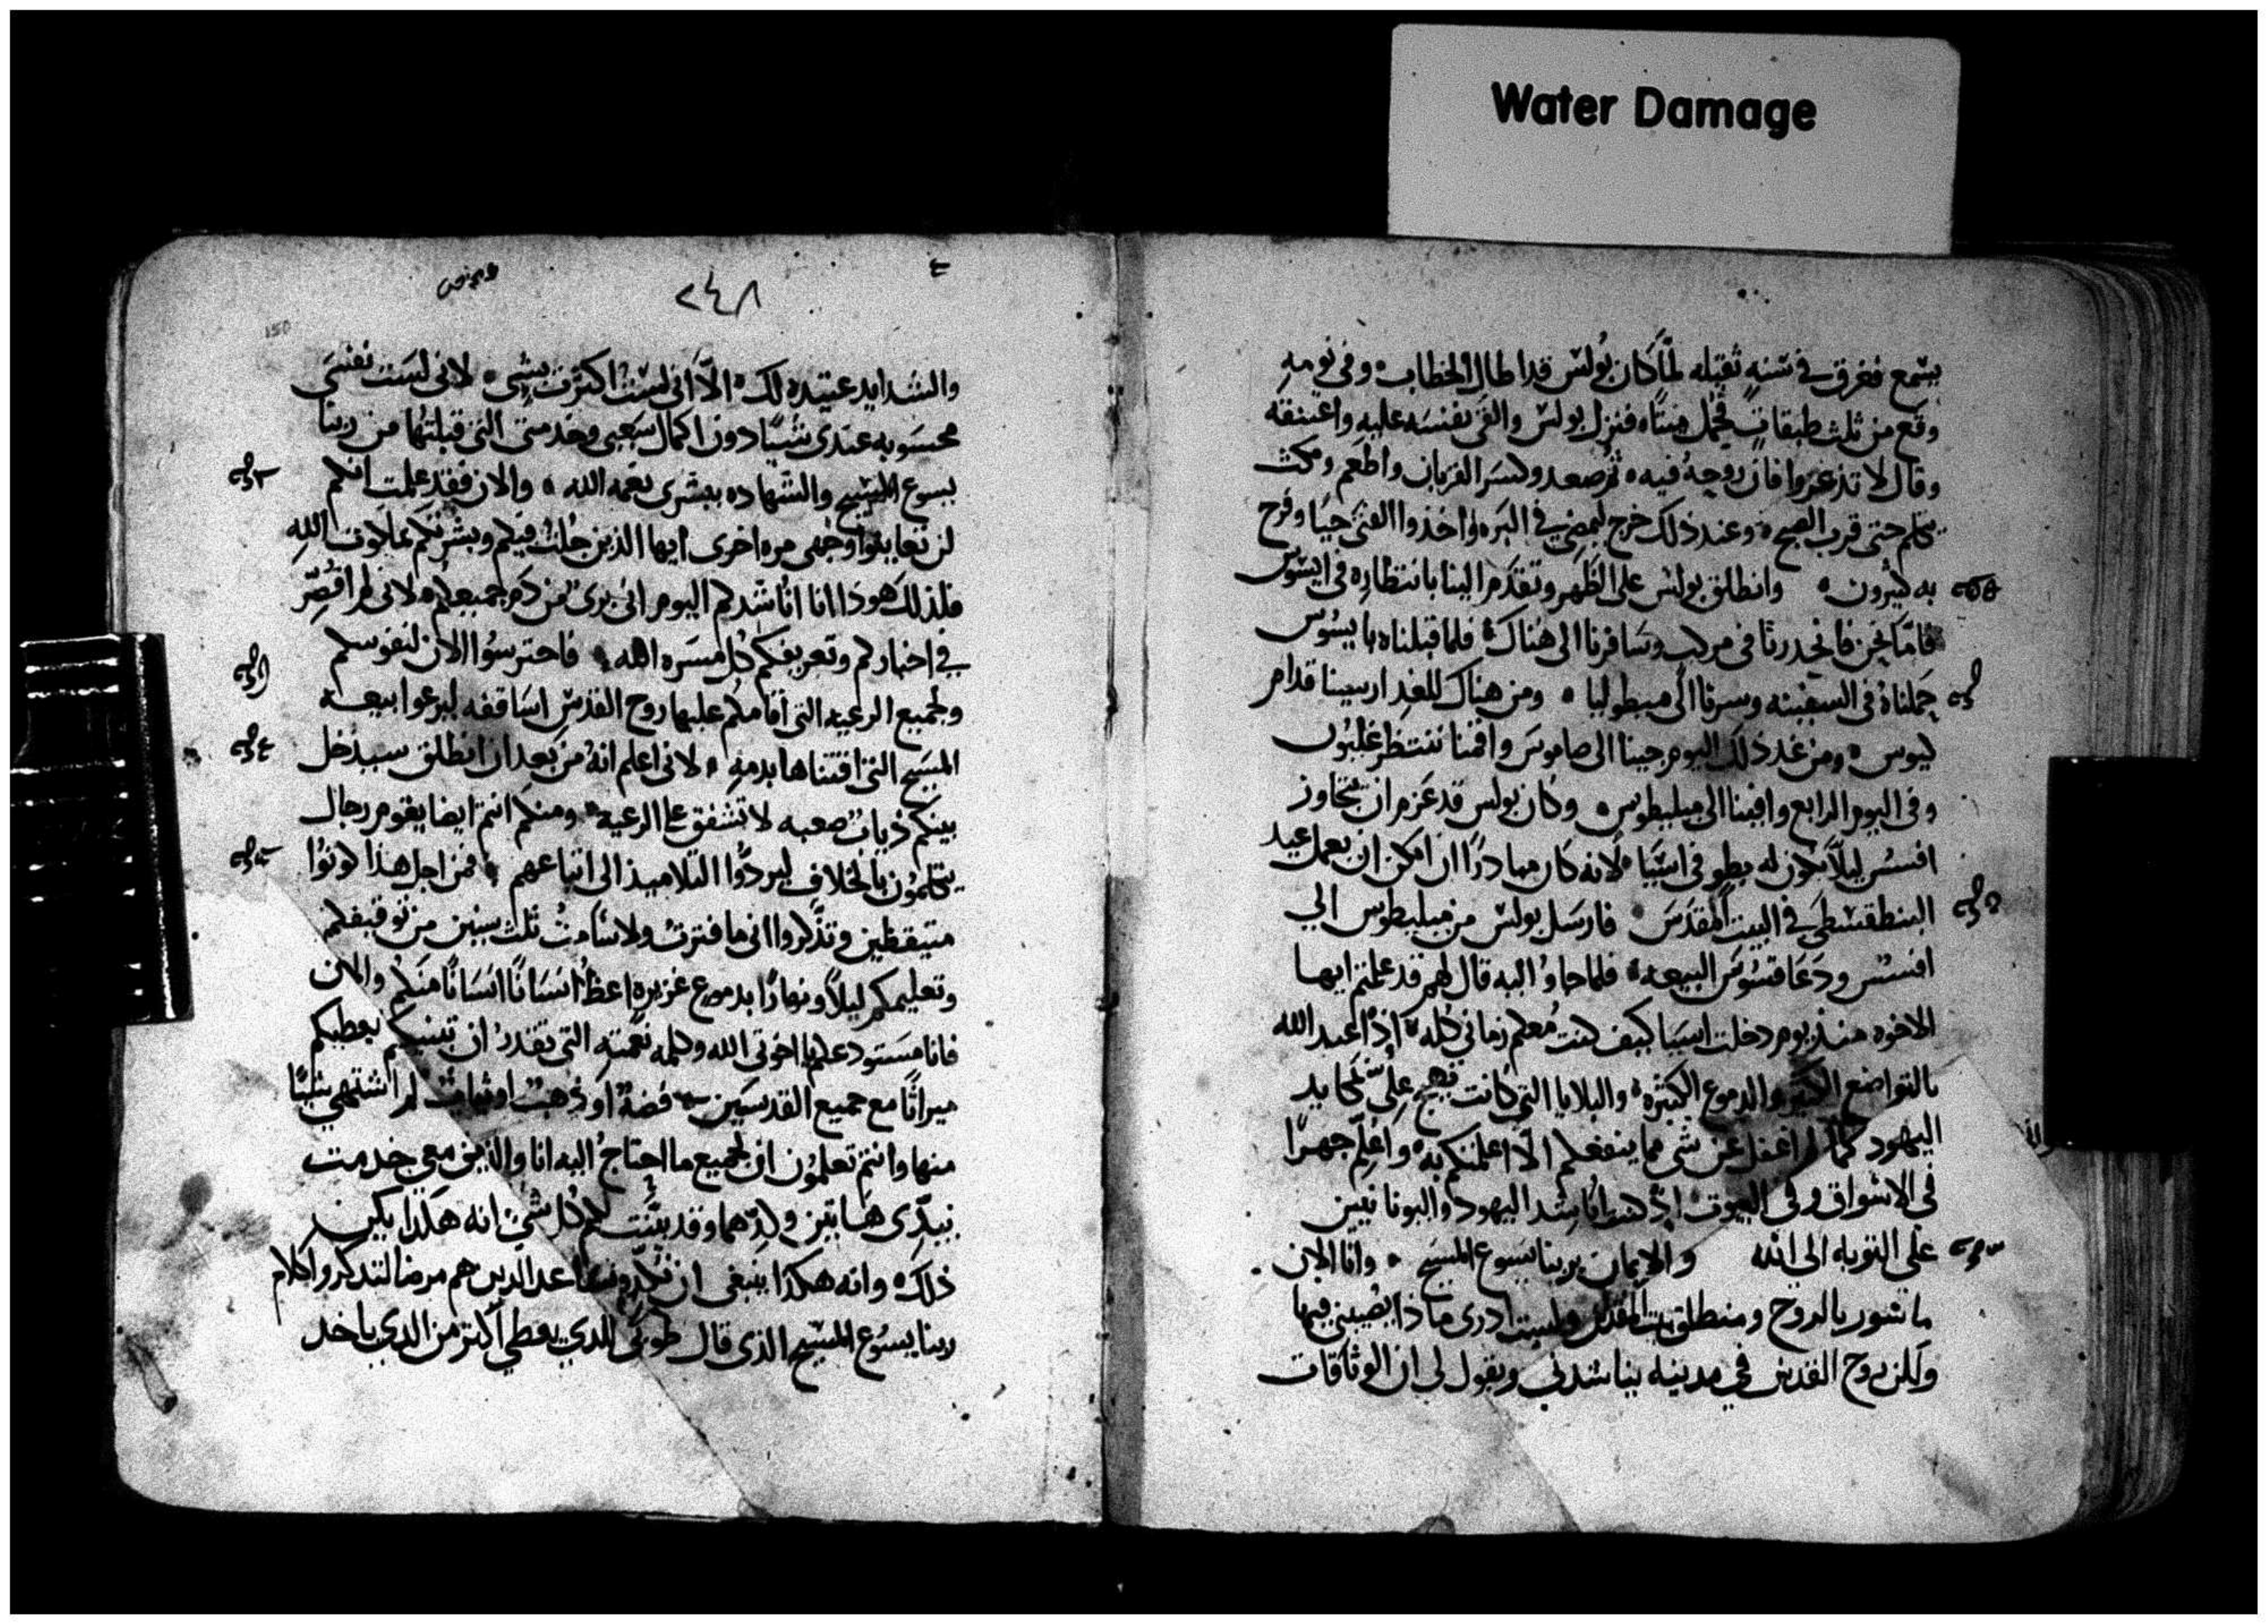 Water Damage
يسمع فغرق في سنه ثقيله لمّا كان بُولس قد اطال الخطاب ۰ وفى نومهِ
وقع من ثلث طبقات فحُمل ميتًا ۰ فنزل بولس والقى نفسَه عليه واعتنقه
وقال لا تذعروا فان روحهُ فيه ۰ ثم صعد وكسَر القربان واطعم ومكث
يتكلم حتى قرب الصبح ۰ وعند ذلك خرج ليمضي في البَر ۰ واخذوا الفتى حيًا وفرح
به كثيرون ۰ وانطلق بولس على الظهر وتقدم الينا بانتظاره فى ايسُوس
فامّا نحن فانحدرنا فى مركب وسَافرنا الى هُناك ۰ فلما قبلناه باييسُوس
حملناهُ فى السفينه وسرنا الى ميطوليا ۰ ومن هناك للغد ارسينا قدام
كيوس ۰ ومن غد ذلك اليوم جينا الى صاموسَ واقمنا ننتظر غليُون
وفى اليوم الرابع وافينا الى ميليطوس ۰ وكان بولس قد عَزم ان يتجاوز
افسُس ليلاّ يكون له بطو فى اسيَا ۰ لانه كان مبادرًا ان امكن ان يعمل عيد
البنطقسطى في البيت المقدَسَ ۰ فارسَل بولس من ميليطوس الي
افسُس ودَعَا قسُوسَ البيعه ۰ فلما جاوُا اليه قال لهم قد علمتم ايها
الاخوه منذ يوم دخلت اسيَا كيف كنت مُعكم زمانى كله ۰ اِذ اعبد الله
بالتواضع الكثير والدموع الكثيره ۰ والبلايا التى كانت تهيج علىّ مكايد
اليهود كما لم اغفل عن شى مما ينفعكم الاّ اعلمتكم به ۰ واُعِلّم جهرًا
فى الاسْواق وفى البيوت ۰ اِذ كنت اُناشد اليهود واليونانيين
على التوبه الى الله والايمان بربنا يسَوع المسيح ۰ وانا الان
ماسُور بالروح ومنطلق بيت المقدس ولست ادرى ماذا يصيبنى فيها
ولكن روح القدس في مدينه يناشدنى ويقول لى ان الوثاقات
٢٤٨
150
والشدايد عتيده لك ۰ الاّ انى لسْتُ اكترث بشي ۰ لانى لسَت نفسَى
محسَوبه عندى شيًا دون اكمال سَعيى وخدمتى التى قبلتُها من ربنا
يسوع المسيح والشهاده ببشرى نعمه الله ۰ والان فقد علمت انكم
لن تعاينوا وجهى مره اخرى ايها الذين جُلت فيكم وبشرتكم بملكوت اللهِ
فلذلك هوذا انا اُناشدكم اليوم انى برى من دَم جميعكم ۰ لانى لم اُقصّر
في اخباركم وتعريفكم كُل مسَره الله ۰ فاحترسُوا الان لنفوسكم
ولجميع الرعيه التى اقامكم عليها روح القدس اسَاقفه ليرعوا بيعه
المسَيح التى اقتناها بدمهِ ۰ لانى اعلم انهُ من بعد ان انطلق سيدخل
بينكم ذياب صعبه لا تشفق على الرعيه ۰ ومنكم انتم ايضا يقوم رجال
يتكلمون بالخلاف ليردّوا التلاميذ الى اتباعهم ۰ فمن اجل هذا كونوُا
متيقظين وتذّكروا انى ما فترتُ ولا سَامتُ ثلث سنين من توقيفكم
وتعليمكم ليلاً ونهارًا بدموع غزيره اعظُ انسَانًا انسَانًا منكم والان
فانا مسَتودعكم يا اخوتى الله وكلمه نعمته التى تقدر ان تبنيكم يعطيكم
ميراثًا مع جميع القدسيين ۰ فضه او ذهبٌ او ثيابٌ لم اشتهي شيًا
منها وانتم تعلمون ان لجميع ما احتاجُ اليه انا والذين معى خدمت
بيدّى هَاتين ولدّهما وقد بيّنت لكم كُل شي انه هكذا يكن
ذلك ۰ وانه هكذا ينبغى ان نكد ونساعد الدين هم مرضا لتدكروا كلام
ربنا يسوُع المسيح الذى قال طوبى للدي يعطي اكثر من الدي ياخد